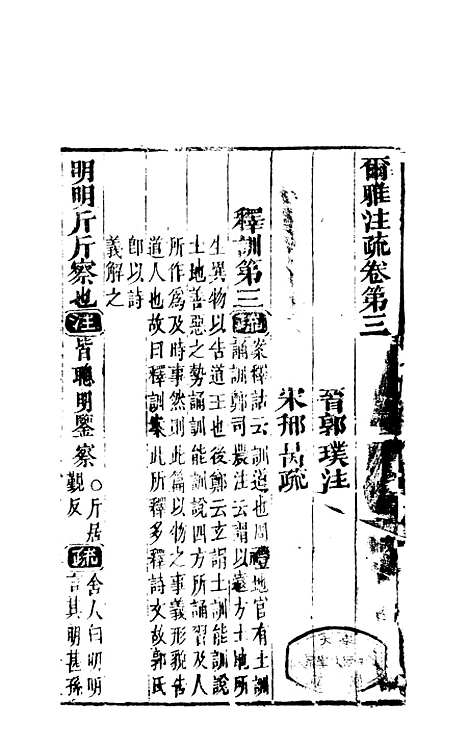 爾雅注疏卷第三
晉郭璞注
宋邢昺疏
釋訓第三 疏 案釋詁云訓道也周禮地官有土訓
誦訓鄭司農注云謂以遠方土地所
生異物以告道王也後鄭云玄謂土訓能訓說
土地善惡之勢誦訓能訓說四方所誦習及人
所作爲及時事然則此篇以物之事義形貌告
道人也故曰釋訓案此所釋多釋詩文故郭氏
卽以詩
義解之
明明斤斤察也 注 皆聰明鑒察 ○斤居
覲反 疏 舍人曰明明
言其明甚孫